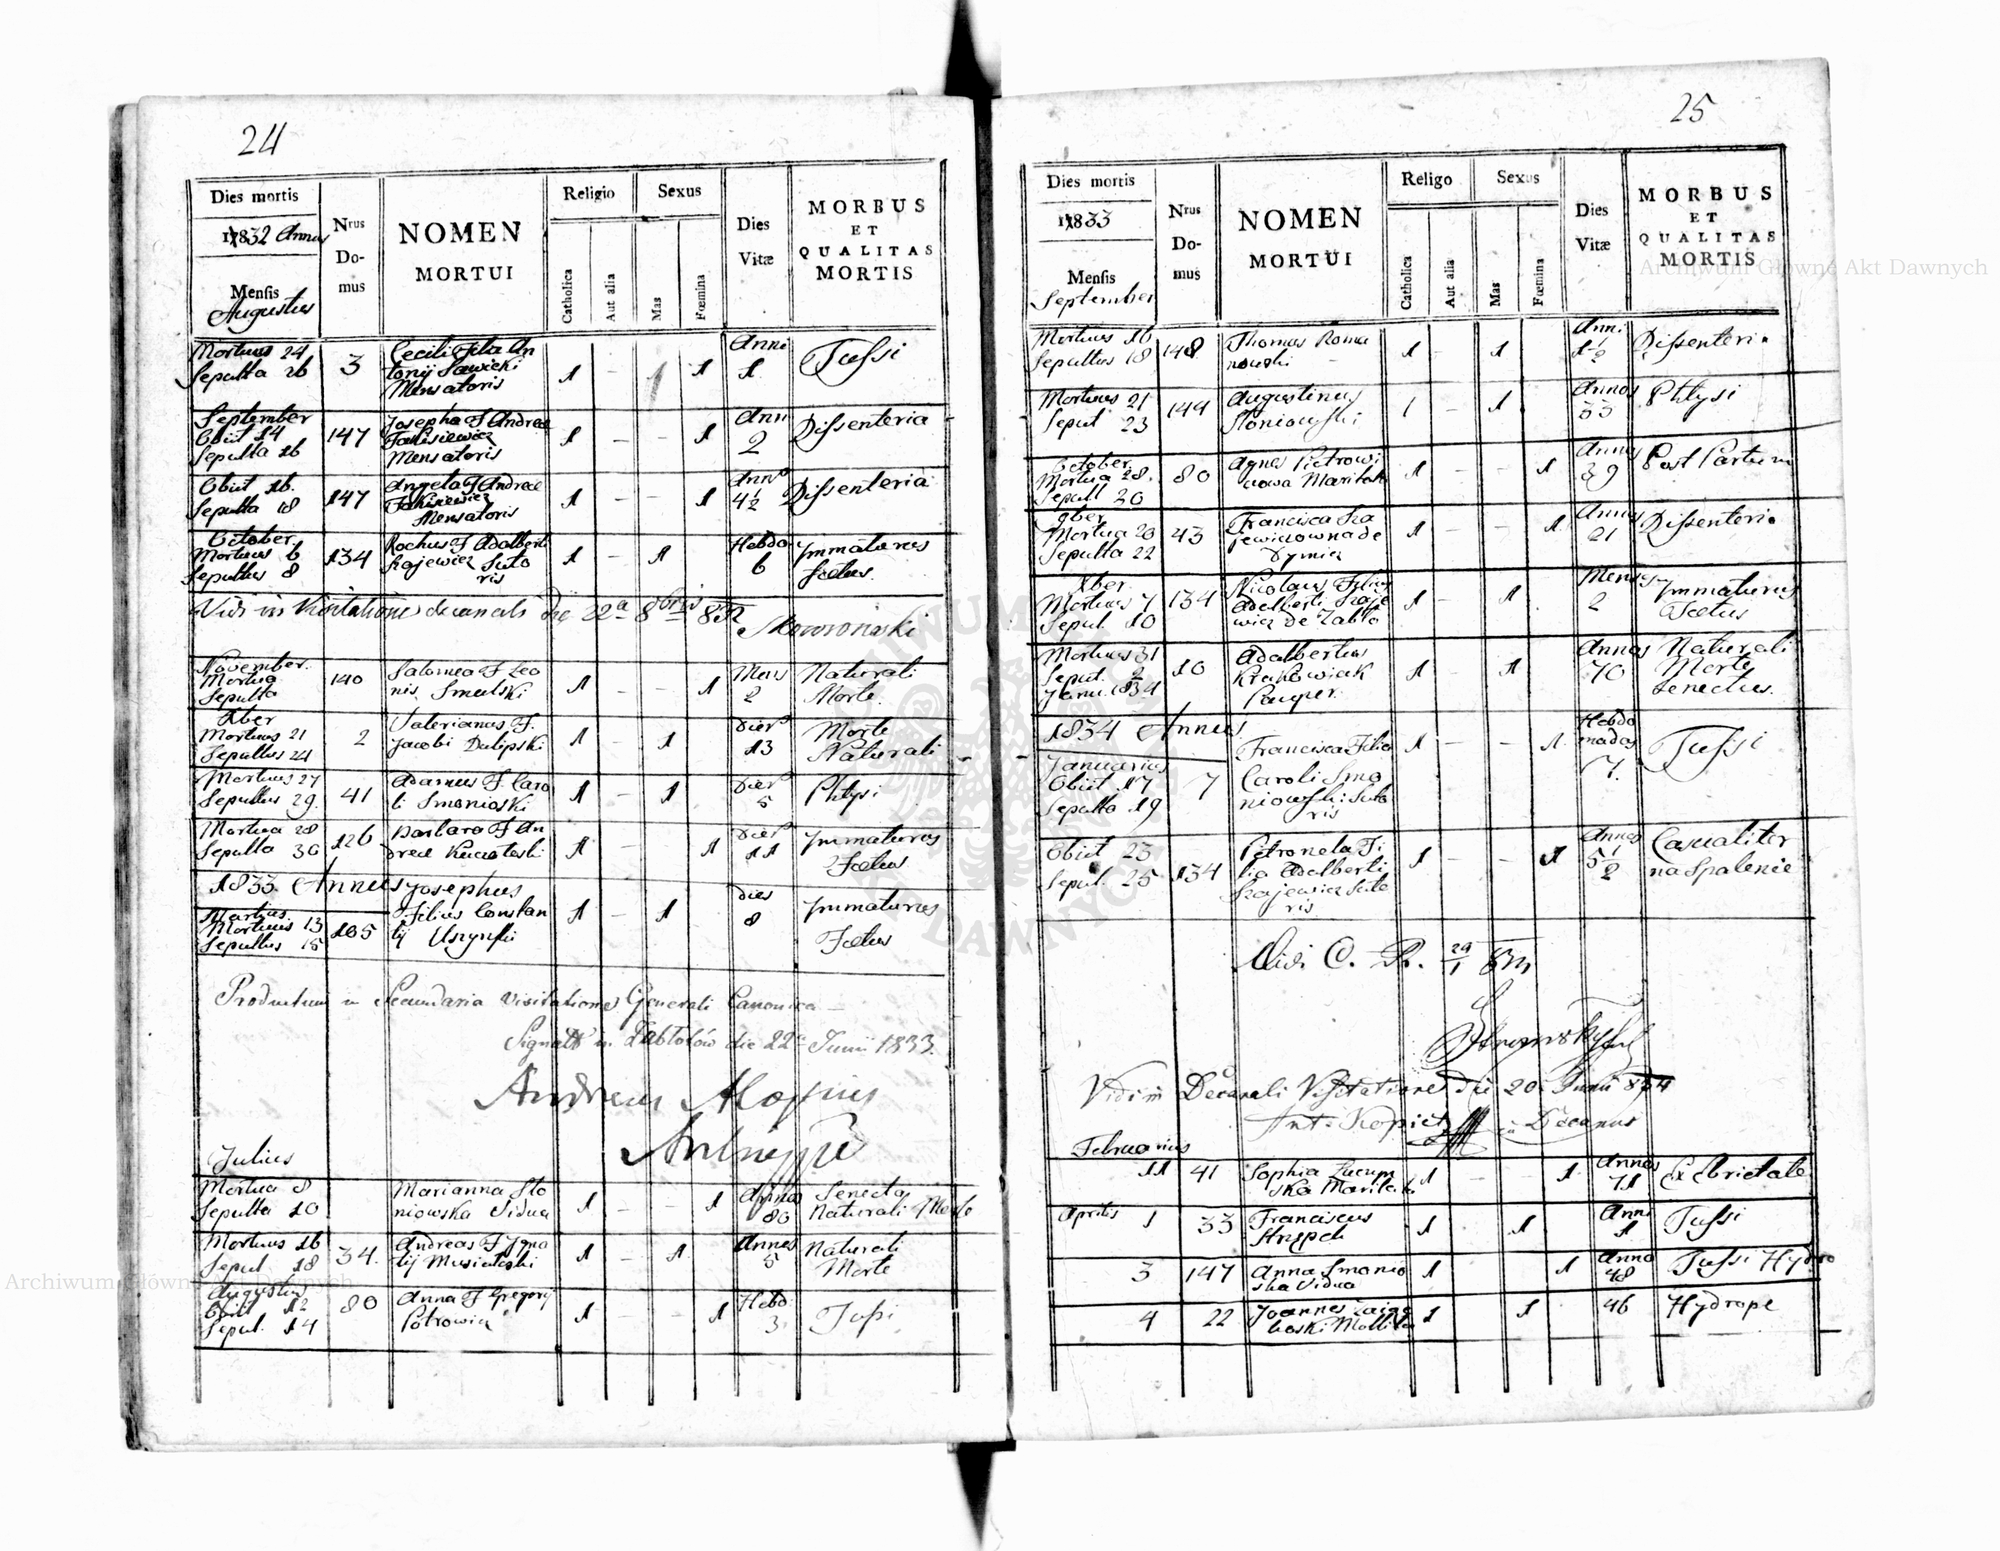 24
Dies mortis
1832 Annus
Mensis
Augustus
Nrus
Do-
mus
NOMEN
MORTUI
Religio
Catholica
Aut alia
Sexus
Mas
Fœmina
Dies
Vitæ
MORBUS
ET
QUALITAS
MORTIS
Mortuus 24
Sepulta 26
3
Cecili Filia An
tonij Sawicki
Mensatoris
1 - 1
Anni
1
Tussi
September
Obiit 14
Sepulta 16
147
Josepha F Andreae
Mensatoris
1 - - 1
Ann
2
Dissenteria
Obiit 16.
Sepulta 18
147
Angela F Andreae
Mensatoris
1 - - 1
Ann
4½
Dissenteria
October
Mortuus 6
Sepultus 8
134
Rochus F Adalberti
Szajewicz Suto
ris
1 - 1
Hebdo
6
Immaturus
Foetus.
Vidi in Visitatione decanali die 22a 8bris 832
November.
Mortua
Sepulta
140
Salomea F Leo
nis Smulski
1 - - 1
Mens
2
Naturali
Morte.
Xber
Mortuus 21
Sepultus 24
2
Valerianus F.
Jacobi Dulipski
1 - 1
Dies
13
Morte
Naturali
Mortuus 27
Sepultus 29.
41
Adamus F Caro
li Smonioski
1 - 1
Dies
5
Phtysi
Mortua 28
Sepulta 30
126
Barbara F An
dreae
1 - - 1
Dies
11
Immaturus
Foetus
1833 Annus
Martius.
Mortuus 13
Sepultus 15
105
Josephus
Filius Constan
tij Uszynski
1 - 1
dies
8
Immaturus
Foetus
Productum in Secundaria Visitatione Generali Canonica
Signatt in Zabłotów die 22a Junii 1833.
Andreas Aloysius
Julius
Mortua 8
Sepulta 10
Marianna Sto
niowska Vidua
1 - - 1
Annos
80
Senecta
Naturali Morte
Mortuus 16
Sepul 18
34.
Andreas F Igna
tij
1 - 1
Annos
5
Naturali
Morte
Augustus
Obiit 12
Sepul. 14
80
Anna F Gregorij
Potrowicz
1 - - 1
Hebd
3.
Tussi
25
Dies mortis
1833
Mensis
September
Nrus
Do-
mus
NOMEN
MORTUI
Religo
Catholica
Aut alia
Sexus
Mas
Fœmina
Dies
Vitæ
MORBUS
ET
QUALITAS
MORTIS
Mortuus 16
Sepultus 18
148
Thomas Roma
nowski
1 - 1
Anni
1½
Dissenteria
Mortuus 21
Sepul 23
144
Augustinus
Stoniowski
1 - 1
Annos
33
Phtysi
October
Mortua 28.
Sepult 30
80
Agnes Pietrowi
czowa Maritata
1 - - 1
Annos
39
Post Partum
9ber
Mortua 20
Sepulta 22
43
Francisca Sza
jewiczowna de
1 - - 1
Annos
21
Dissenteria
Xber.
Mortuus 7
Sepul. 10
134
Nicolaus Filius
Adalberti Szaje
wicz de Zablo
1 - 1
Menses
2
Immaturus
Foetus
Mortuus 31
Sepul. 2
Janu. 1834
10
Adalbertus
Krakowiak
Pauper.
1 - 1
Annos
70
Naturali
Morte
Senectus.
1834 Annus
Januarius
Obiit 17
Sepulta 19
7
Francisca Filia
Caroli Smo
niowski Suto
ris
1 - - 1
Hebdo
madas
7.
Tussi
Obiit 23
Sepul. 25
134
Petronela Fi
lia Adalberti
Szajewicz Suto
ris
1 - - 1
Annos
5½
Casualiter
na Spalenie
Vidi C. R. 29/1 834
Vidi in Decanali Visitatione die 20. Junii 834
Ant. Kopicz Decanus
Februarius
11
41
Sophia
ska Maritata
1 - - 1
Annos
71
Ex Ebrietate
Aprilis 1
33
Franciscus
1 - 1
Anni
1
Tussi
3
147
Anna Smonio
ska Vidua
1 - - 1
Anno
48
Tussi Hydro
4
22
Joannes
1 - 1
46
Hydrope
Archiwum Główne Akt Dawnych
Archiwum Główne Akt Dawnych